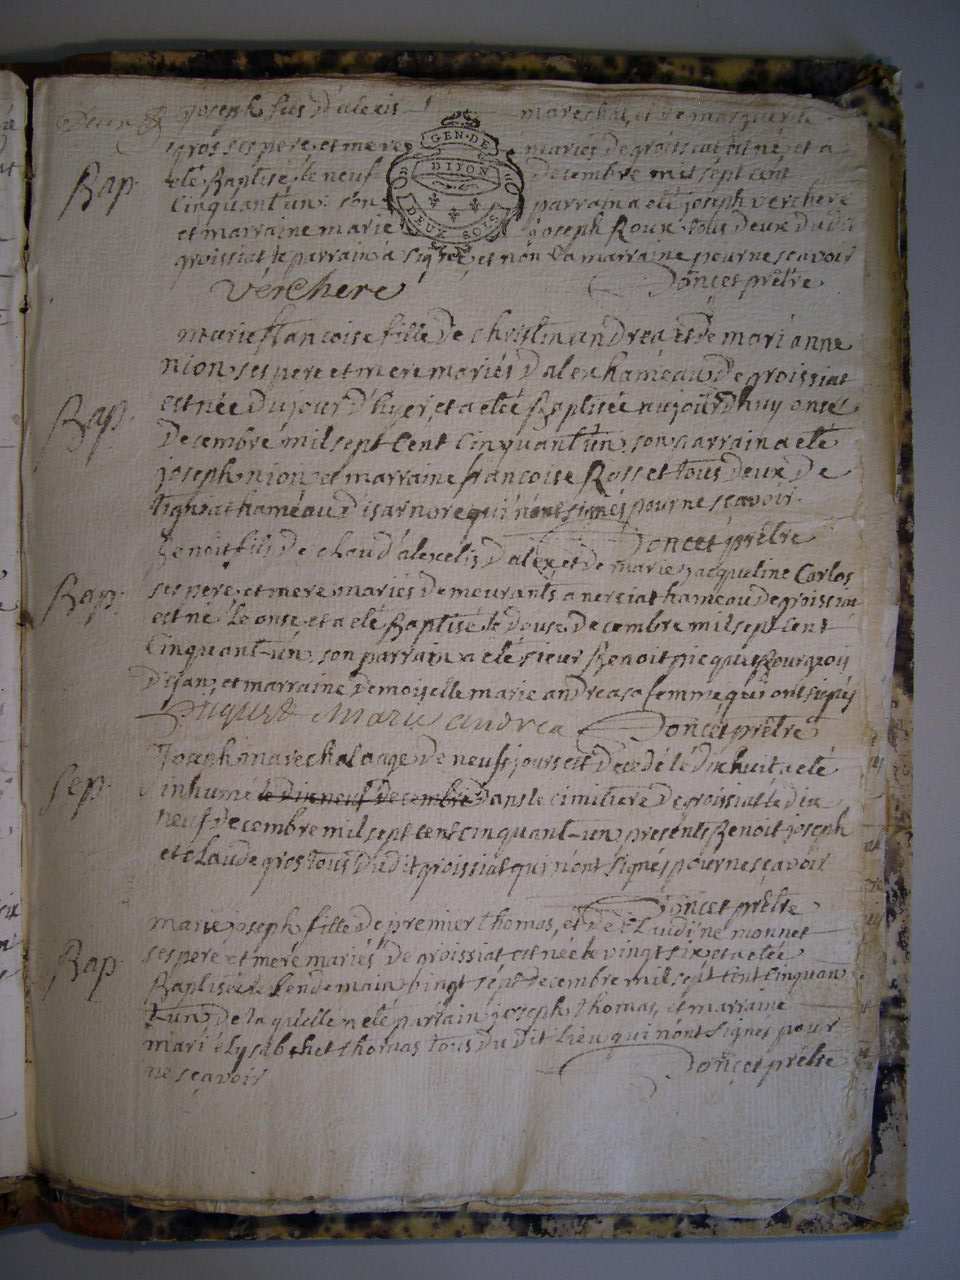 joseph fils d'alexis marechal, et de marguerite
gros ses pere et mere mariés de groissiat est né, et a
Bap. eté Baptisé le neuf decembre mil sept cent
cinquant'un son parrain a eté joseph verchere
et marraine marie joseph Roux tous deux du dit
groissiat le parrain a signé, et non la marraine pour ne sçavoir
verchere Doncet prêtre
GEN. DE
DIJON
DEUX SOLS
marie francoise fille de christin andrea et de mari anne
nion ses pere et mere mariés d'alex hameau de groissiat
Bap. est née du jour d'hyer, et a eteé Baptisée aujourd'huy onse
decembre mil sept cent cinquant'un, son parrain a eté
joseph nion et marraine francoise Rosset tous deux de
hameau d'isarnore qui n'ont signés pour ne sçavoir.
Doncet prêtre
Benoit fils de claud' d'alex et de marie jacqueline Carlos
Bap. ses pere, et mere mariés demeurants a nerciat hameau de groissiat
est né le onse, et a eté Baptisé le douse decembre mil sept cent
cinquant-un, son parrain a eté sieur Benoit picquet Bourgeois
d'ijan, et marraine demoiselle marie andrea sa femme qui ont signés
marie andrea Doncet prêtre
Joseph marechal aagé de neufs jours est decedé le dix huit a eté
Sep. inhumé le dix neuf decembre dans le cimitiere de groissiat le dix
neuf decembre mil sept cent cinquant-un, presents Benoit joseph
et claude gros tous du dit groissiat qui n'ont signés pour ne sçavoir
Doncet prêtre
marie joseph fille de premier thomas, et de claudine monnet
ses pere et meré mariés de groissiat est née le vingt six et a etée
Bap. Baptisée le lendemain vingt sept decembre mil sept cent cinquan
t'un de laquelle a eté parrain joseph thomas, et marraine
mari elysabethet thomas tous du dit lieu qui n'ont signés pour
ne sçavoir Doncet prêtre